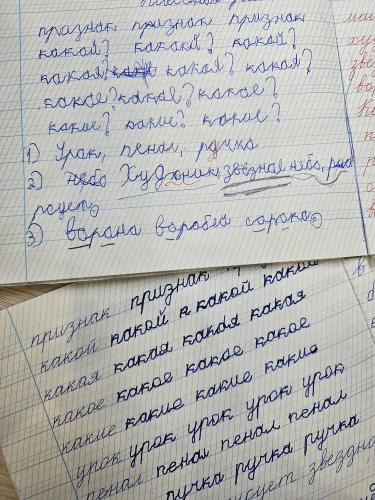 признак признак признак
какой? какой? какой?
какая? какая? какая?
какое? какое? какое?
какие? какие? какие?
1) Урок, пенал, ручка
2) Художник, звёзная небо,
рсует.
3) ворона воробей сорока.
признак признак
какой какой какой какой
какая какая какая какая
какое какое какое какое
какие какие какие какие
урок урок урок урок
пенал пенал пенал пенал
ручка ручка ручка
сует звездно